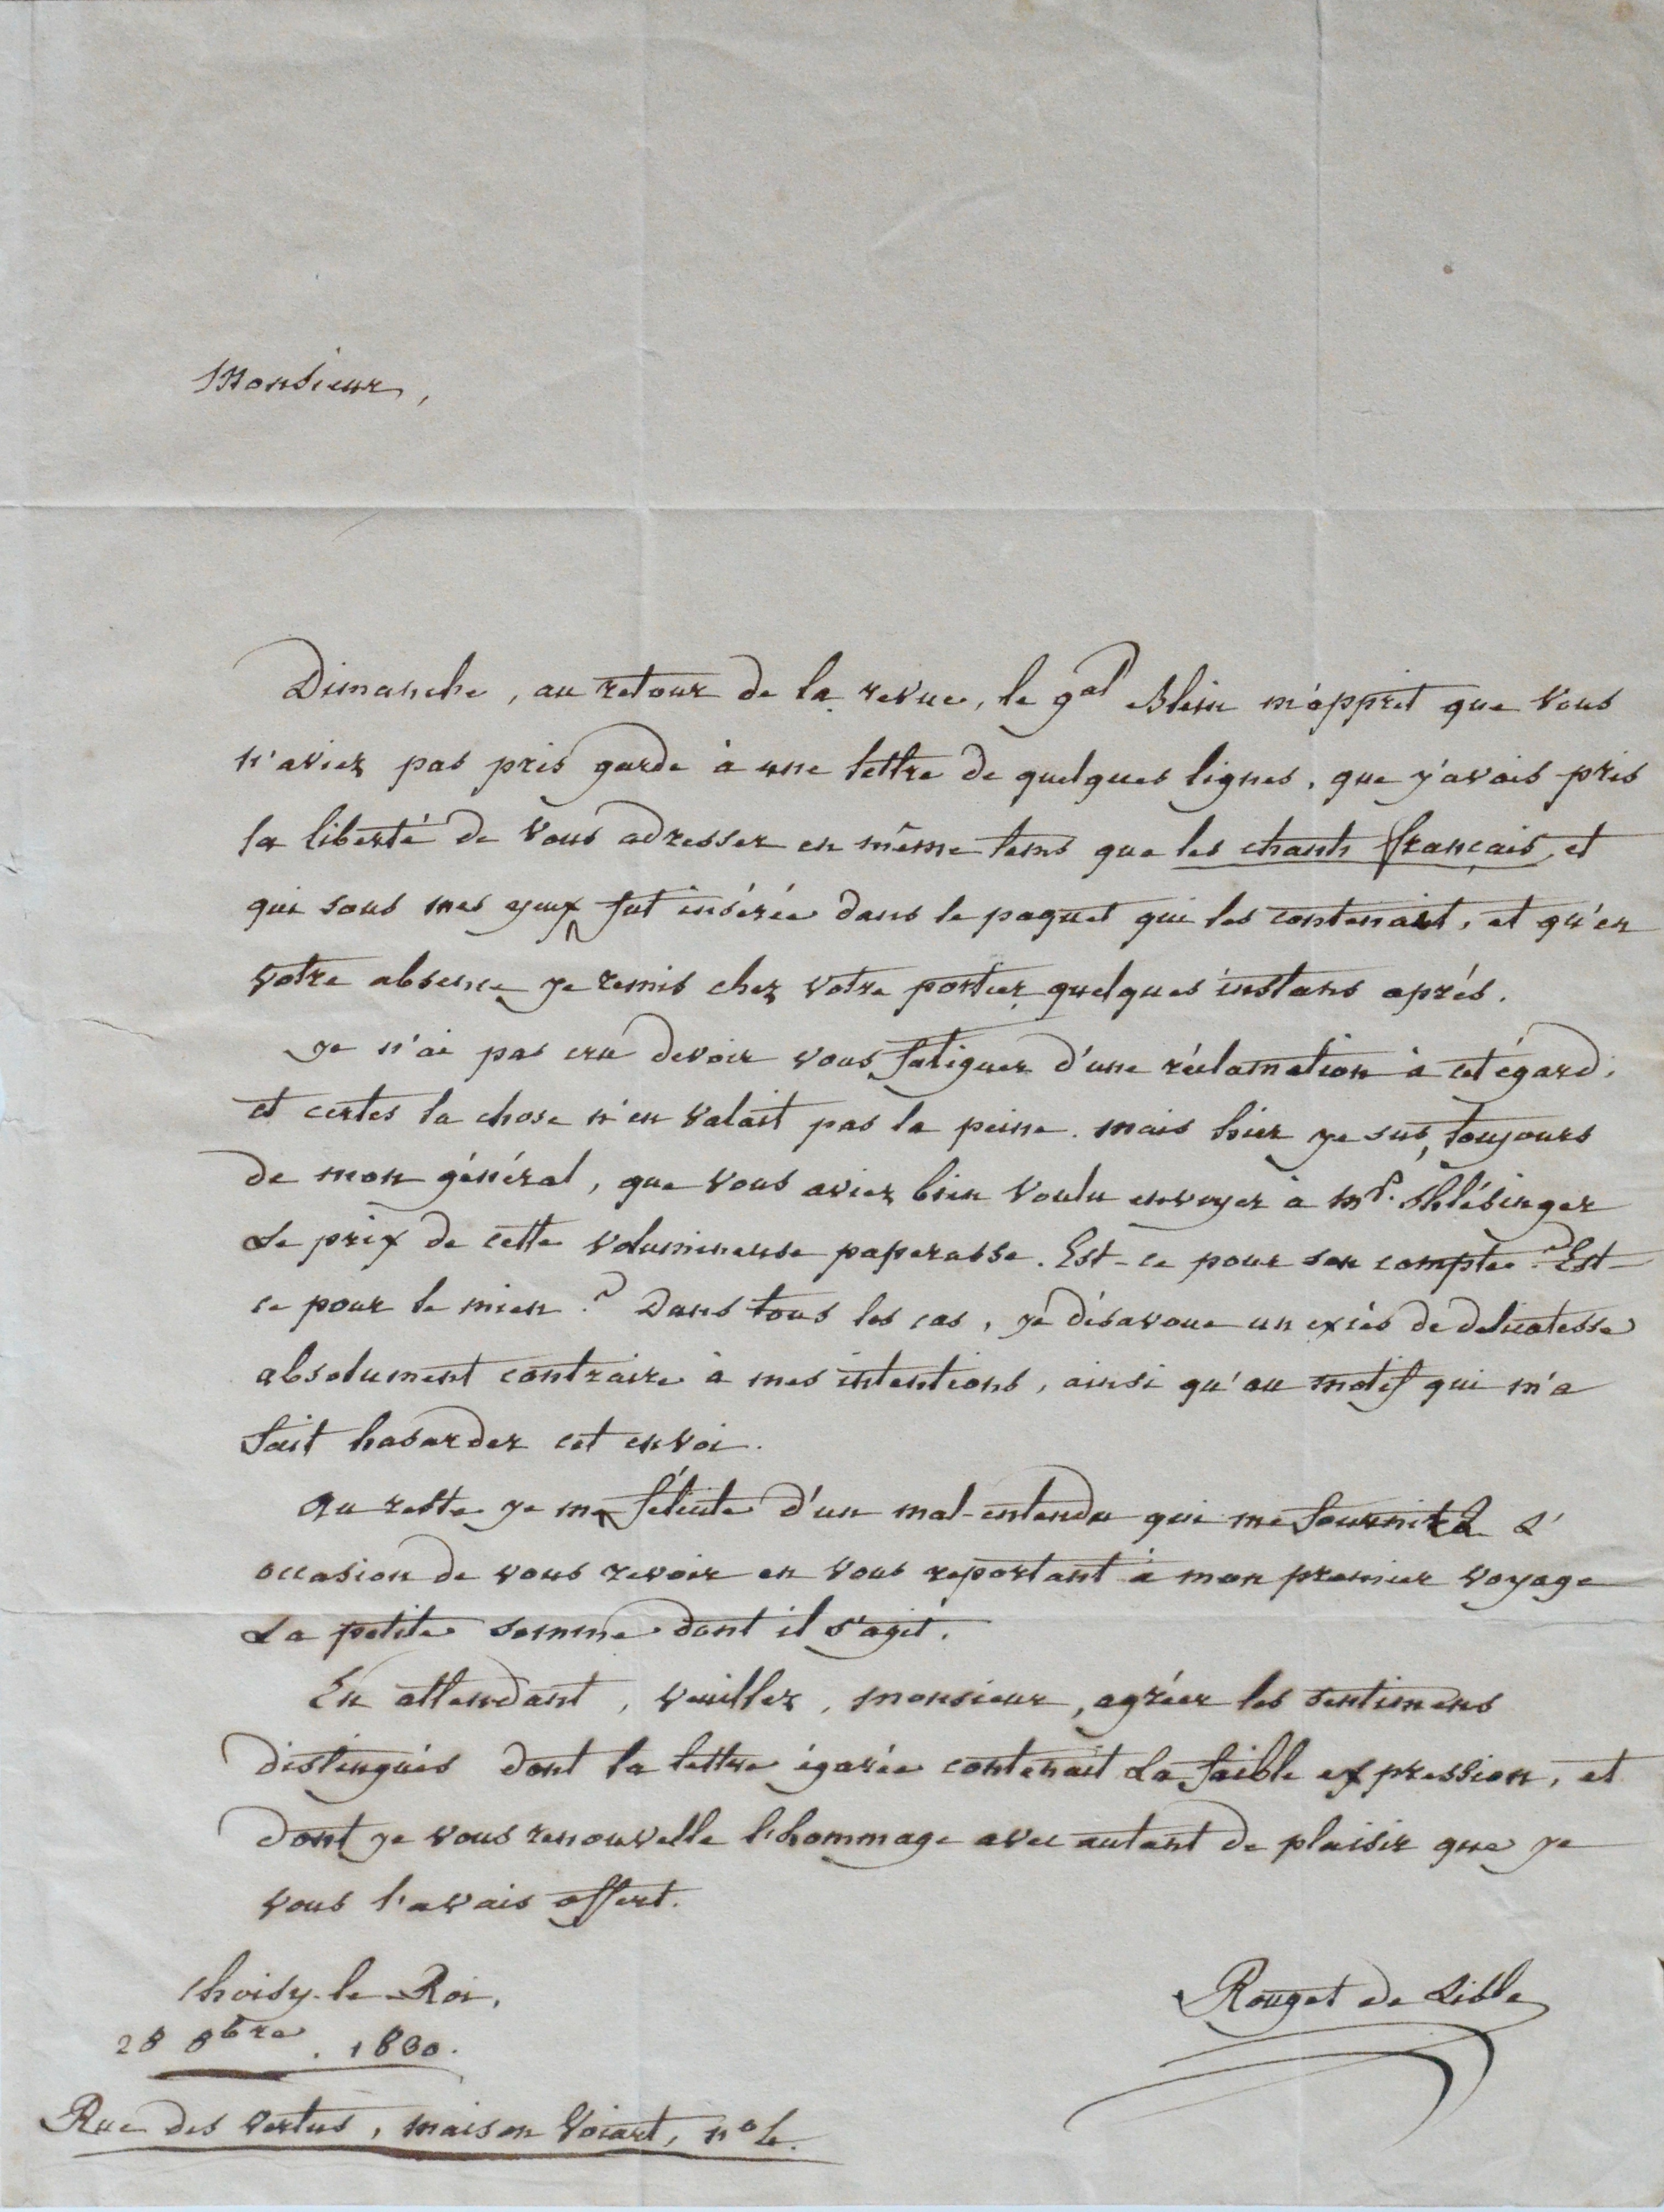 Monsieur,
Dimanche, au retour de la revue, le gal Blein m'apprit que vous
n'aviez pas pris garde à une lettre de quelques lignes, que j'avais pris
la liberté de vous adresser en même tems que les chants français, et
qui sous mes yeux fut insérée dans le paquet qui les contenait, et qu'en
votre absence je remis chez votre portier quelques instans après.
je n'ai pas cru devoir vous fatiguer d'une réclamation à cet égard,
et certes la chose n'en valait pas la peine. mais hier je sus, toujours
de mon général, que vous aviez bien voulu envoyer à mr. Shlésinger
le prix de cette volumineuse paperasse. Est-ce pour son compte? Est-
ce pour le mien? Dans tous les cas, je désavoue un excès de délicatesse
absolument contraire à mes intentions, ainsi qu'au motif qui m'a
fait hasarder cet envoi.
Au reste je me félicite d'un mal-entendu qui me fournit l'
occasion de vous revoir en vous reportant à mon premier voyage
la petite somme dont il s'agit.
En attendant, veuillez, monsieur, agréer les sentimens
distingués dont la lettre égarée contenait la faible expression, et
dont je vous renouvelle l'hommage avec autant de plaisir que je
vous l'avais offert.
Choisy-le-Roi,
28 8bre. 1830.
Rouget de Lisle
Rue des vertus, maison Voiart, n° 4.